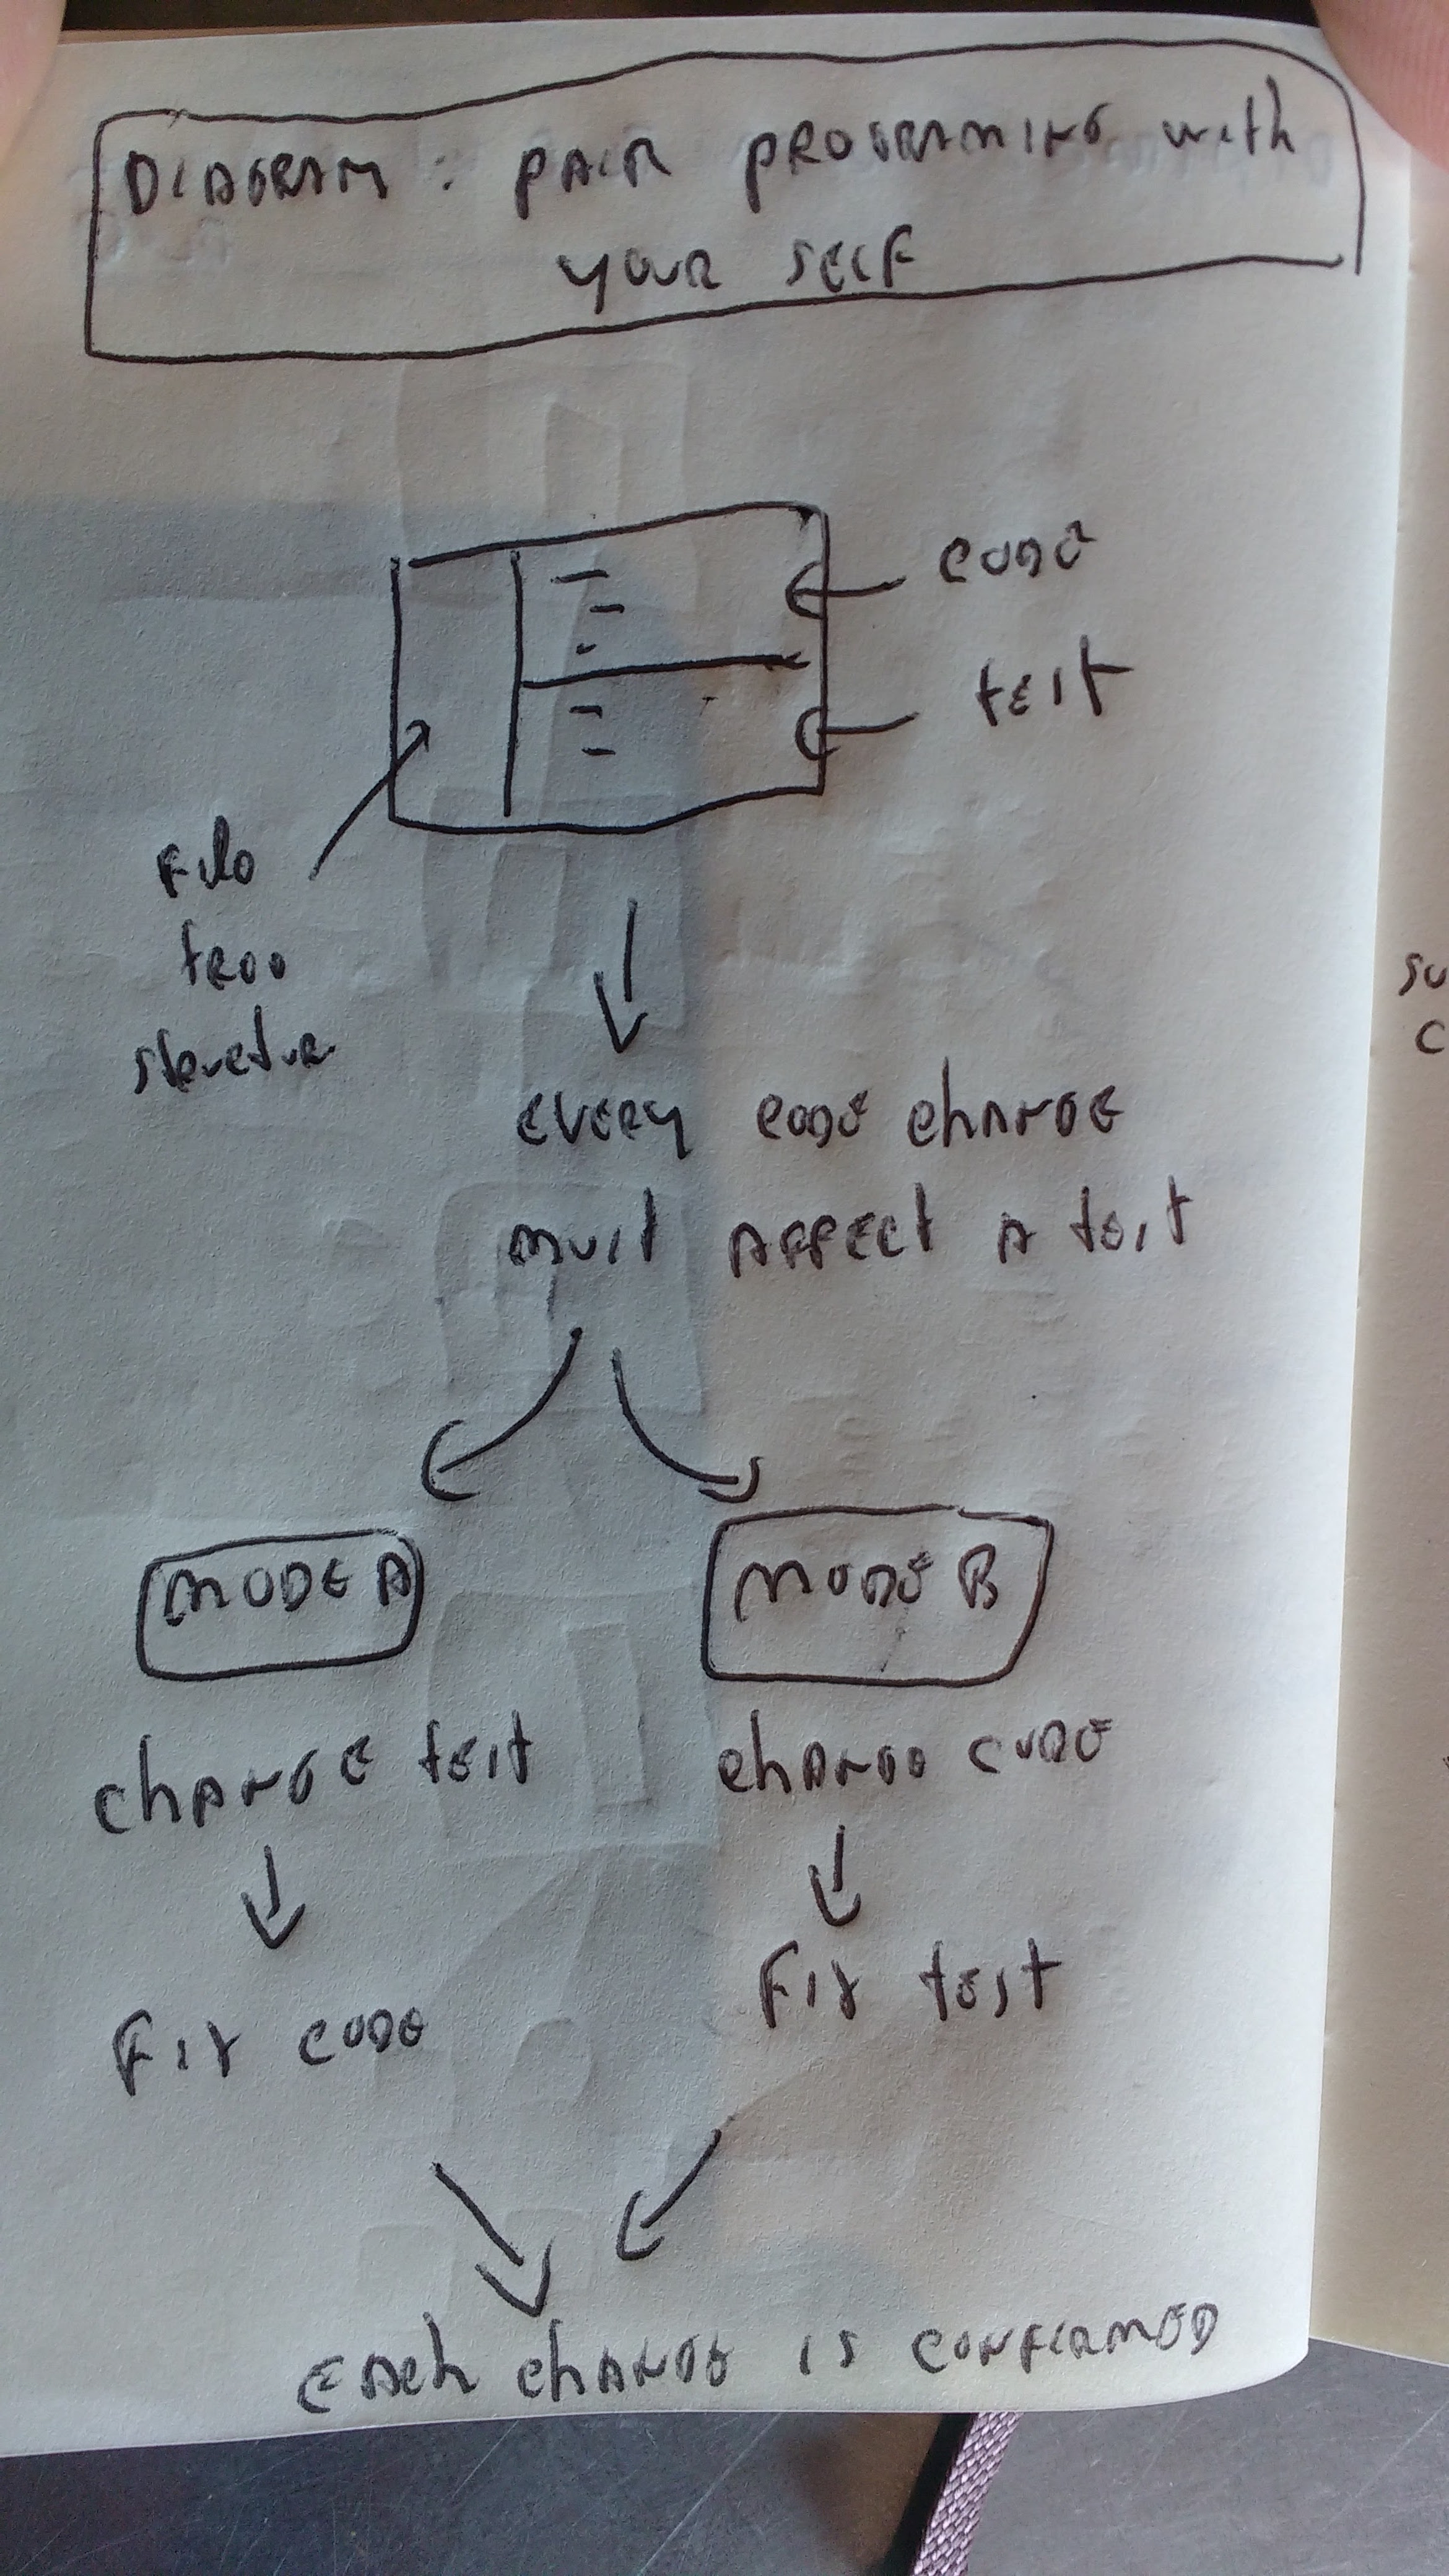 DIAGRAM: PAIR PROGRAMING with
YOUR SELF
CODE
test
File
tree
structur
EVERY CODE CHANGE
must AFFECT A test
MODE A
MODE B
CHANGE test
CHANGE CODE
FIX CODE
FIX test
EACH CHANGE IS CONFIRMED
su
C